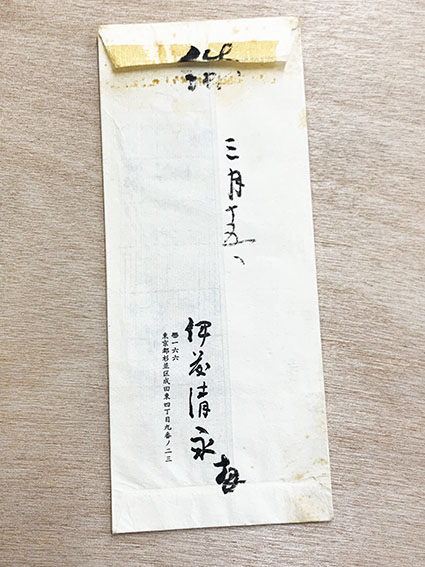 三月十五、
伊藤清永
一六六
東京都杉並区成田東四丁目九番ノ二三